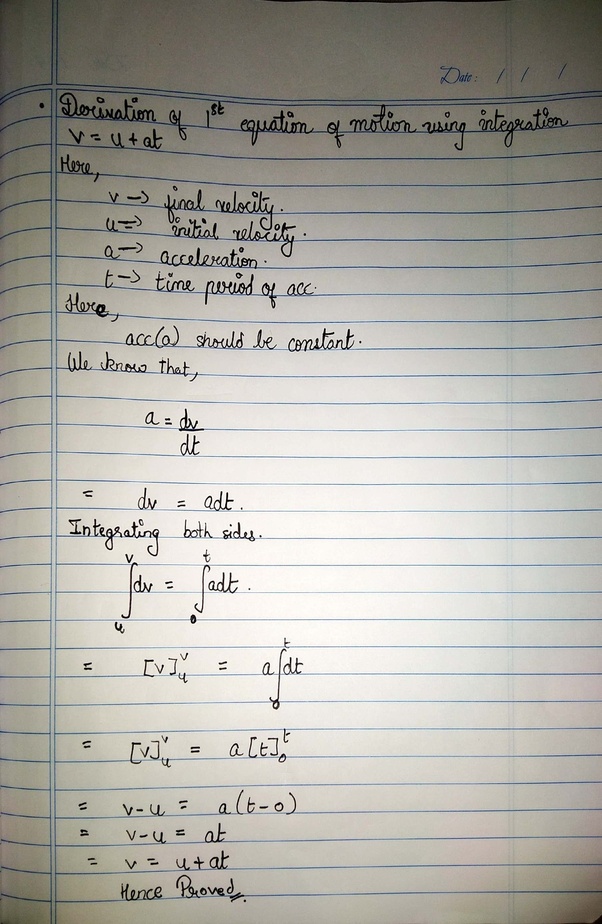 Date: / / /
• Derivation of 1st equation of motion using integration
v = u + at
Here,
v → final velocity.
u ⇒ initial velocity.
a → acceleration.
t → time period of acc.
Here,
acc(a) should be constant.
We know that,
a = dv/dt
= dv = adt.
Integrating both sides.
∫_u^v dv = ∫_0^t adt.
= [v]_u^v = a∫_0^t dt
= [v]_u^v = a[t]_0^t
= v-u = a(t-0)
= v-u = at
= v = u+at
Hence Proved